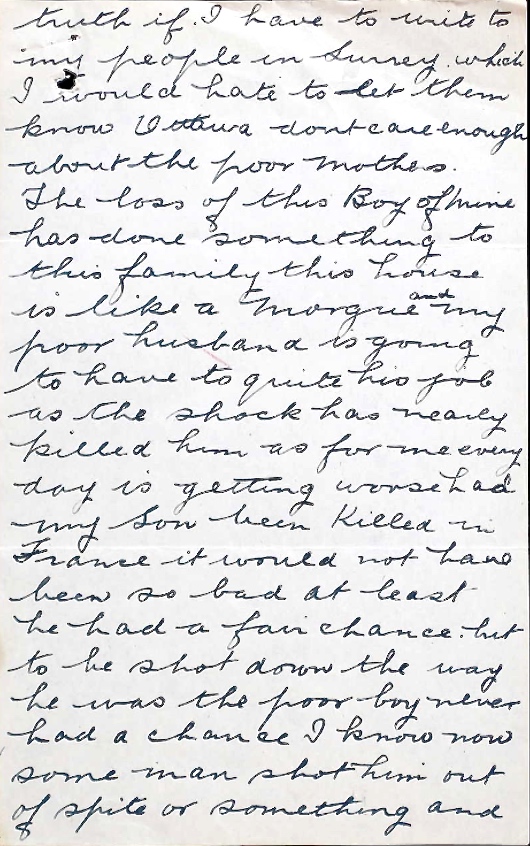 truth if. I have to write to
my people in Surrey. which
I would hate to let them
know Ottawa dont care enough
about the poor Mothers.
The loss of this Boy of mine
has done something to
this family this house
is like a Morgue and my
poor husband is going
to have to quite his job
as the shock has nearly
killed him as for me every
day is getting worse had
my Son been Killed in
France it would not have
been so bad at least
he had a fair chance. but
to be shot down the way
he was the poor boy never
had a chance I know now
some man shot him out
of spite or something and